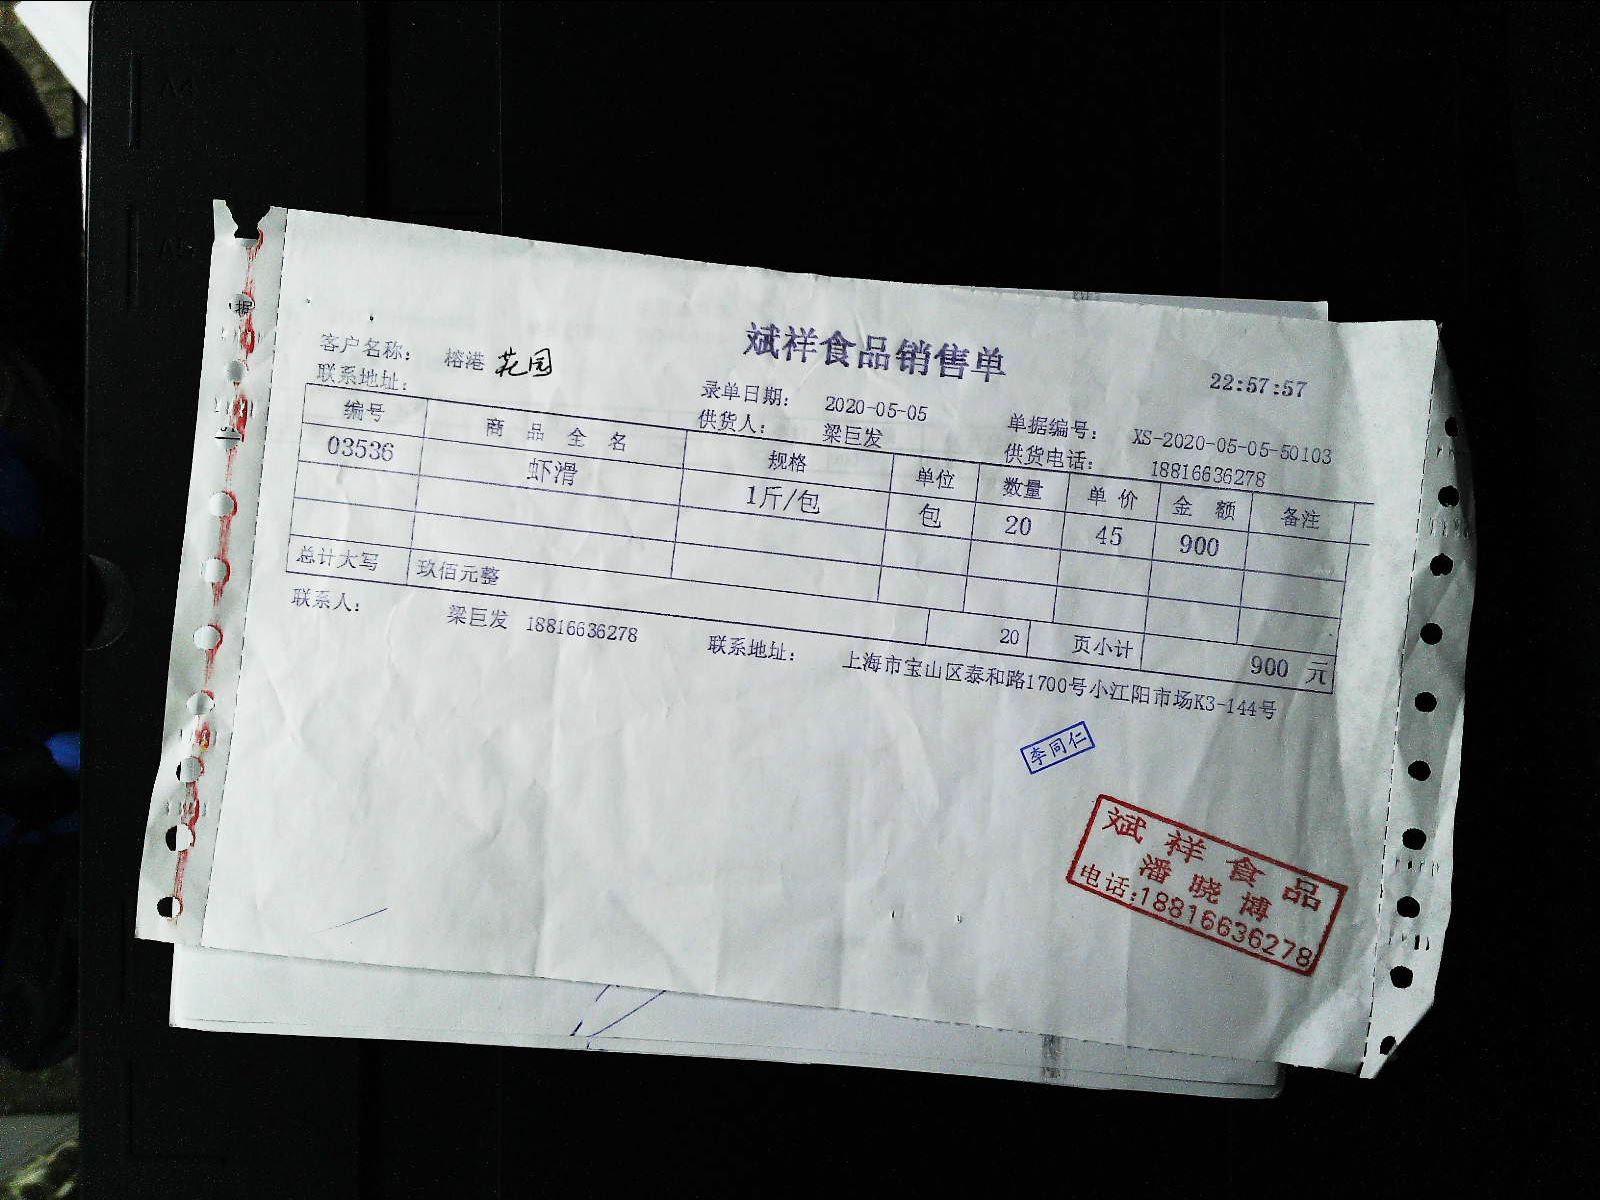 斌祥食品销售单
22:57:57
客户名称： 榕港 花园
录单日期： 2020-05-05 单据编号： XS-2020-05-05-50103
联系地址： 供货人： 梁巨发 供货电话： 18816636278
编号 商品全名 规格 单位 数量 单价 金额 备注
03536 虾滑 1斤/包 包 20 45 900
总计大写 玖佰元整 20 页小计 900 元
联系人： 梁巨发 18816636278 联系地址： 上海市宝山区泰和路1700号小江阳市场K3-144号
李同仁
斌祥食品
潘晓博
电话:18816636278
据
A4
A5